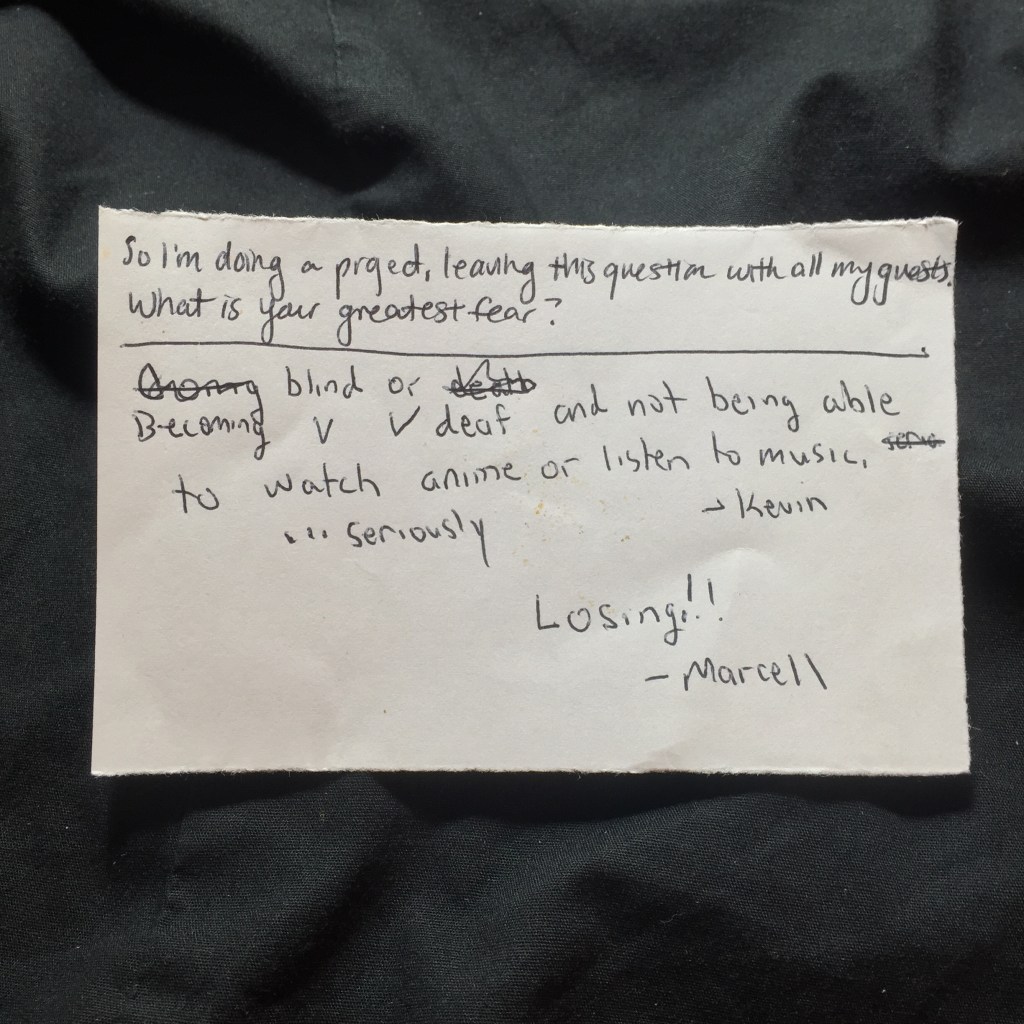 So I'm doing a project, leaving this question with all my guests.
What is your greatest fear?
blind or death
Becoming V V deaf and not being able
to watch anime or listen to music.
... seriously
→ Kevin
Losing!!
- Marcell